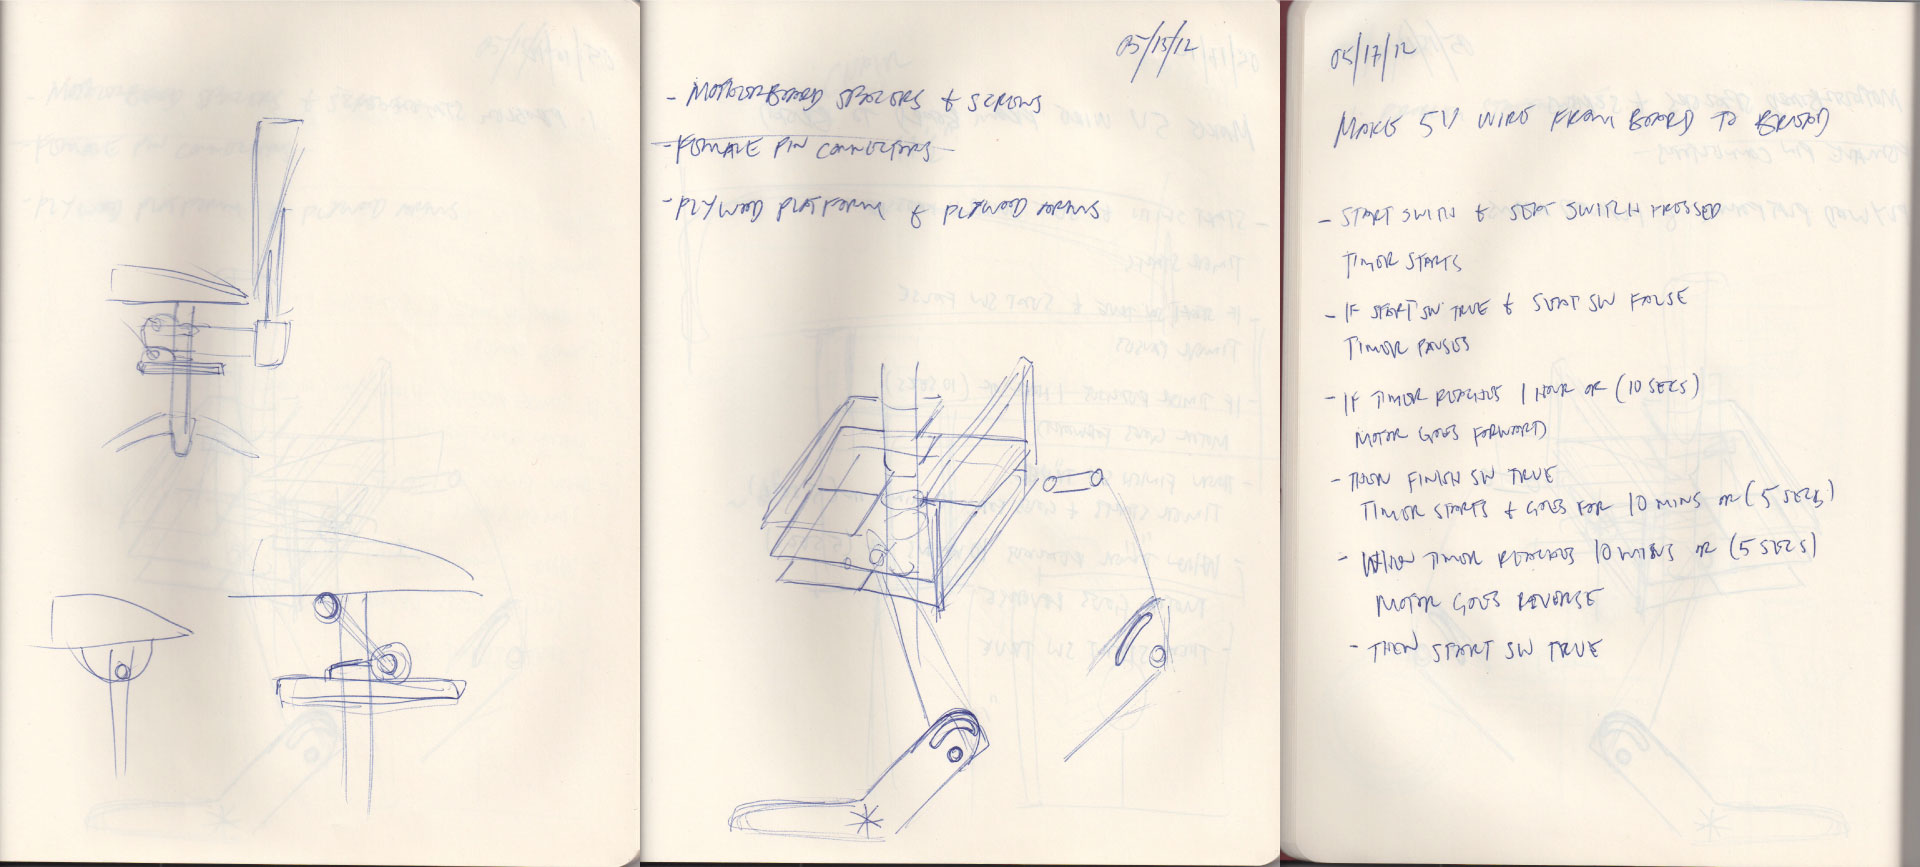 05/15/12
- MOTHERBOARD SPACERS & SCREWS
- FEMALE PIN CONNECTORS -
- PLYWOOD PLATFORM & PLYWOOD ARMS
05/17/12
MAKE 5V WIRE FROM BOARD TO BREAD
- START SWITCH & SEAT SWITCH PRESSED
TIMER STARTS
- IF START SW TRUE & SEAT SW FALSE
TIMER PAUSES
- IF TIMER REACHES 1 HOUR OR (10 SECS)
MOTOR GOES FORWARD
- THEN FINISH SW TRUE
TIMER STARTS & GOES FOR 10 MINS OR (5 SECS)
- WHEN TIMER REACHES 10 MINS OR (5 SECS)
MOTOR GOES REVERSE
- THEN START SW TRUE